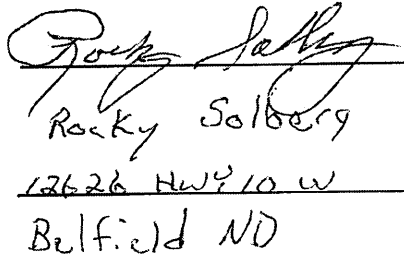 Rocky Solberg
Rocky Solberg
12626 HWY 10 W
Belfield ND